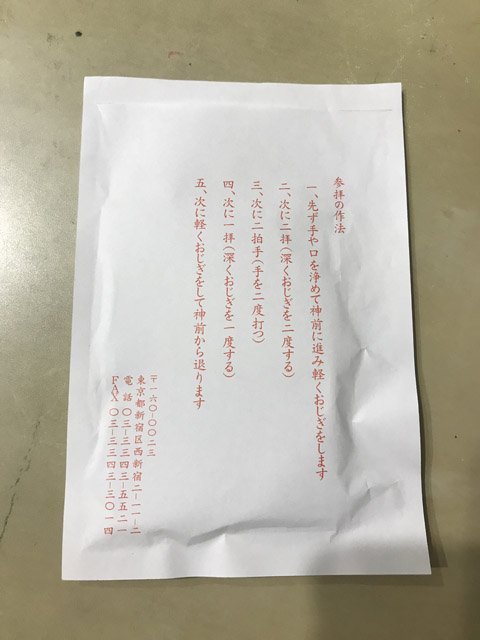 参拝の作法
一、先ず手や口を浄めて神前に進み軽くおじぎをします
二、次に二拝(深くおじぎを二度する)
三、次に二拍手(手を二度打つ)
四、次に一拝(深くおじぎを一度する)
五、次に軽くおじぎをして神前から退ります
〒一六〇-〇〇二三
東京都新宿区西新宿二-一一-二
電話〇三-三三四三-五五二一
FAX〇三-三三四三-三〇一四